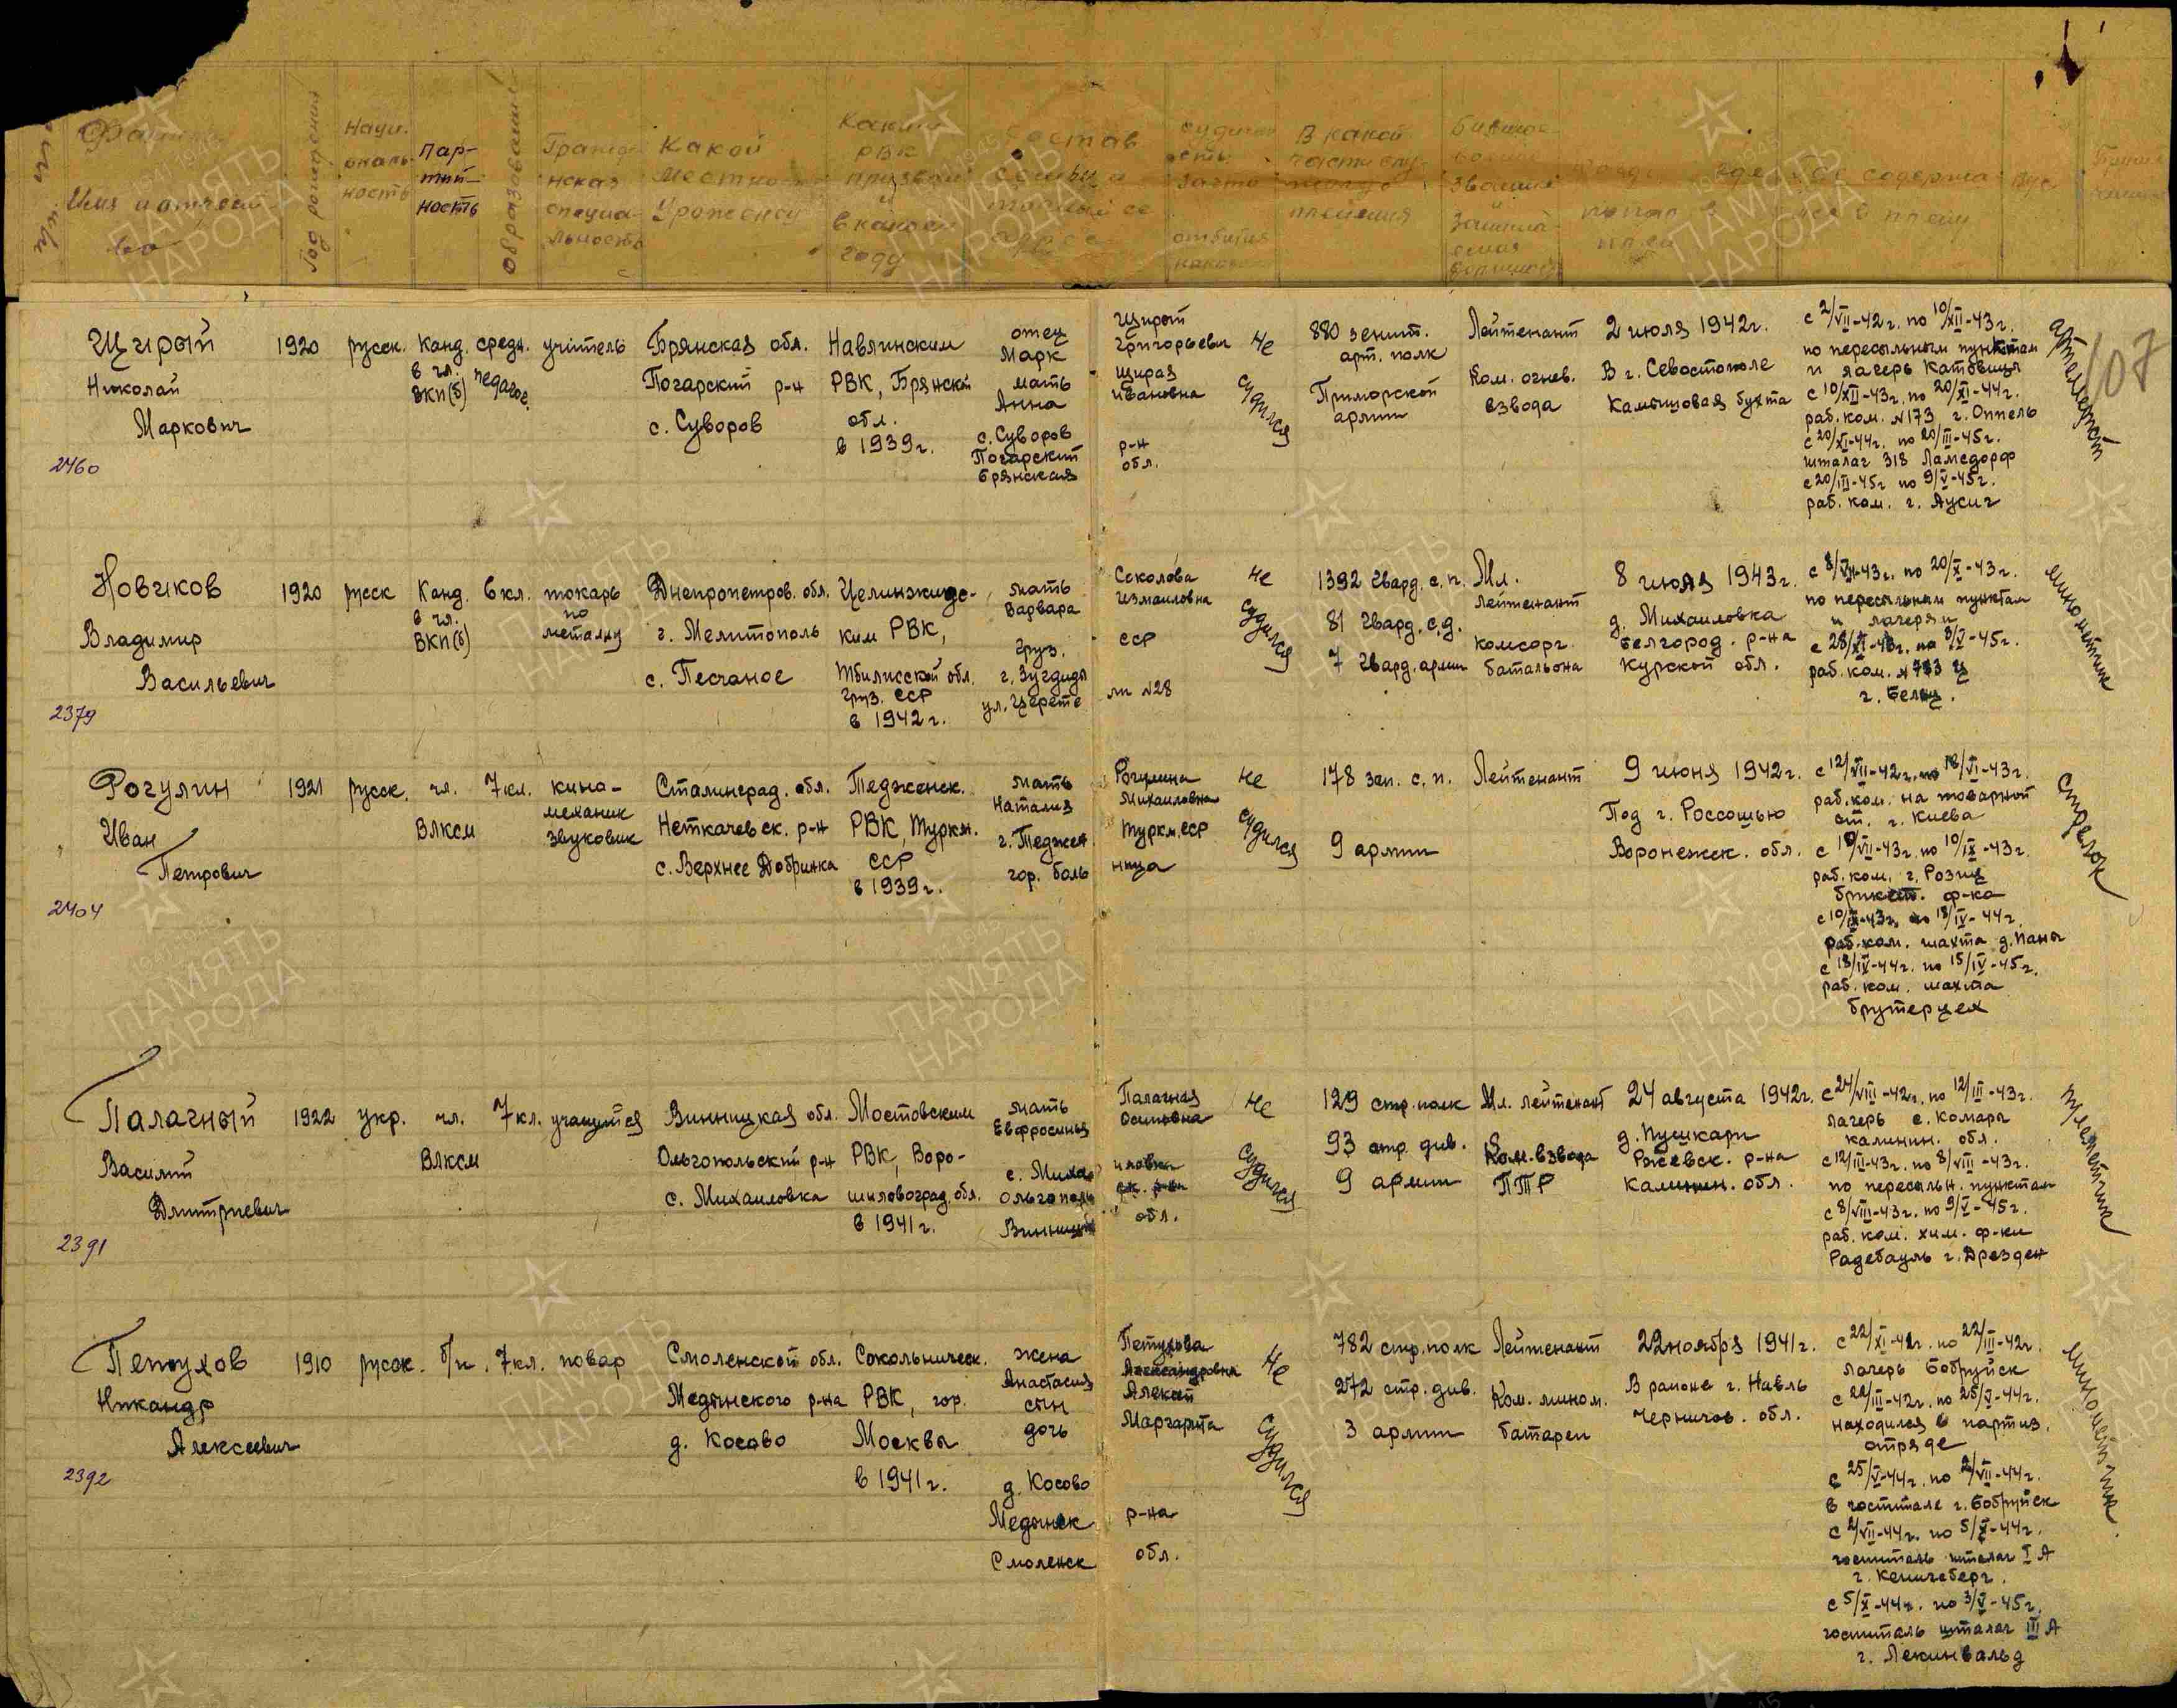 Фамилия
Имя и отчест-
во
Год рождения
Наци-
ональ-
ность
пар-
тий-
ность
образование
Гражда-
нская
специа-
льность
Какой
местно-
Уроженец
Каким
РВК
призван
и
в каком
году
Состав
семьи и
точный ее
адрес
судимо-
сть
В какой
части слу-
до
пленения
звание
занима-
емая
должность
Когда где
попал в
плен
Где содержа-
лся в плену
107
Щирый
Николай
Маркович
2460
1920
русск.
Канд.
в чл.
ВКП(б)
средн.
педагог.
учитель
Брянская обл.
Погарский р-н
с. Суворов
Навлинским
РВК, Брянской
обл.
в 1939г.
отец Щирый
Марк Григорьевич
мать Щирая
Анна Ивановна
с. Суворов
Погарский р-н
Брянская обл.
Не
судился
880 зенит.
арт. полк
Приморской
армии
Лейтенант
Ком. огнев.
взвода
2 июля 1942г.
В г. Севостополе
Камышовая бухта
с 2/VII-42г. по 10/XII-43г.
по пересыльным пунктам
и лагерь Катовиця
с 10/XII-43г. по 20/XI-44г.
раб. ком. №173 г. Оппель
с 20/XI-44г. по 20/III-45г.
шталаг 318 Ламсдорф
с 20/III-45г по 9/V-45г.
раб. ком. г. Аусиг
Новиков
Владимир
Васильевич
2379
1920
русск
Канд.
в чл.
ВКП(б)
6 кл.
токарь
по
металлу
Днепропетров. обл.
г. Мелитополь
с. Песчаное
ким РВК,
Тбилисской обл.
Груз. ССР
в 1942г.
мать Соколова
Варвара Измаиловна
Груз. ССР
г. Зугдиди
ул. Церете ли №28
не
судился
1392 Гвард. с. п.
81 Гвард. с. д.
7 Гвард. армии
Мл.
лейтенант
комсорг
батальона
8 июля 1943г.
д. Михаиловка
Белгород. р-на
Курской обл.
с 8/VII-43г. по 20/X-43г.
по пересыльным пунктам
и лагеря
раб. ком.
минометчик
Рогулин
Иван
Петрович
2404
1921
русск.
чл.
ВЛКСМ
7 кл.
кино-
механик
звуковик
Сталинград. обл.
Неткачевск. р-н
с. Верхнее Добринка
Тедженск.
РВК, Туркм.
ССР
в 1939г.
мать Рогулина
Наталия Михаиловна
г. Теджен Туркм. ССР
гор. боль ница
не
судился
178 зап. с. п.
9 армии
Лейтенант
9 июня 1942г.
Под г. Россошью
Воронежск. обл.
с 12/VII-42г. по 18/VI-43г.
раб. ком. на товарной
ст. г. Киева
по 10/IX-43г.
брикет. ф-ка
с 10/IX-43г. по 18/IV-44г.
раб. ком. шахта
с 18/IV-44г. по 15/IV-45г.
раб. ком. шахта
брутерцех
стрелок
Палагный
Василий
Дмитриевич
2391
1922
укр.
чл.
ВЛКСМ
7 кл.
учащийся
Винницкая обл.
Ольгопольский р-н
с. Михаиловка
Мостовским
РВК, Воро-
шиловоград. обл.
в 1941г.
мать Палагная
Евфросинья Осиповна
с. Миха иловки
Ольгополь ск. р-он
Винницк обл.
Не
судился
129 стр. полк
93 стр. див.
9 армии
Мл. лейтенант
Ком. взвода
ПТР
24 августа 1942г.
д. Пушкари
Ржевск. р-на
Калинин. обл.
с 24/VIII-42г. по 12/III-43г.
лагерь с. Комары
Калинин. обл.
с 12/III-43г. по 8/VIII-43г.
по пересыльн. пунктам
с 8/VIII-43г. по 9/V-45г.
раб. ком. хим. ф-ки
Радебауль г. Дрезден
Петухов
Никандр
Алексеевич
2392
1910
русск.
б/п
7 кл.
повар
Смоленской обл.
Медынского р-на
д. Косово
Сокольническ.
РВК, гор.
Москвы
в 1941г.
жена Петухова
Анастасия Александровна
сын Алексей
дочь Маргарита
д. Косово
Медынск р-на
Смоленск обл.
Не
судился
782 стр. полк
272 стр. див.
3 армии
Лейтенант
Ком. мином.
батареи
22 ноября 1941г.
В районе г. Навль
Чернигов. обл.
с 22/XI-41г. по 22/III-42г.
лагерь Бобруйск
с 22/III-42г. по 25/V-44г.
находился в партиз.
отряде
с 25/V-44г. по 2/VII-44г.
в госпитале г. Бобруйск
с 2/VII-44г. по 5/X-44г.
госпиталь шталаг I А
г. Кенигсберг.
с 5/X-44г. по 3/V-45г.
госпиталь шталаг III А
г. Лекинвальд
минометчик.
ПАМЯТЬ
НАРОДА